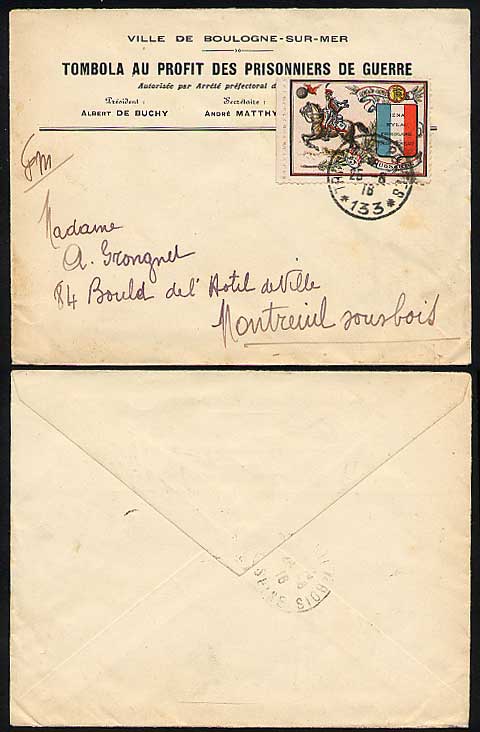 VILLE DE BOULOGNE-SUR-MER
TOMBOLA AU PROFIT DES PRISONNIERS DE GUERRE
Autorisée par Arrêté préfectoral d
Président :
Secrétaire :
ALBERT DE BUCHY
ANDRÉ MATTHY
FM
Madame
A. Grongnet
84 Bould de l'Hotel de Ville
Montreuil sous bois
*133*
18
BOIS